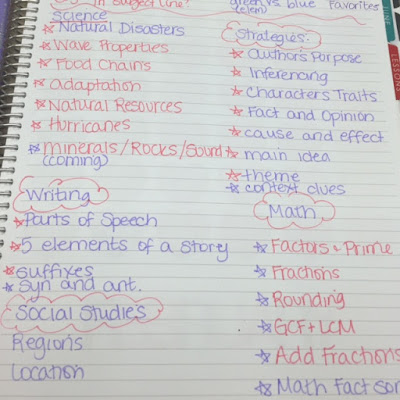 in subject line?
green vs. blue favorites
(elem)
Science
Natural Disasters
Wave Properties
Food Chains
Adaptation
Natural Resources
Hurricanes
minerals/Rocks/Sound
(coming)
Strategies:
Authors Purpose
Inferencing
Characters Traits
Fact and Opinion
cause and effect
main idea
theme
context clues
Writing
Parts of Speech
5 elements of a story
suffixes
syn and ant.
Social Studies
Regions
Location
Math
Factors + Prime
Fractions
Rounding
GCF + LCM
Add Fractions
Math Fact Sor